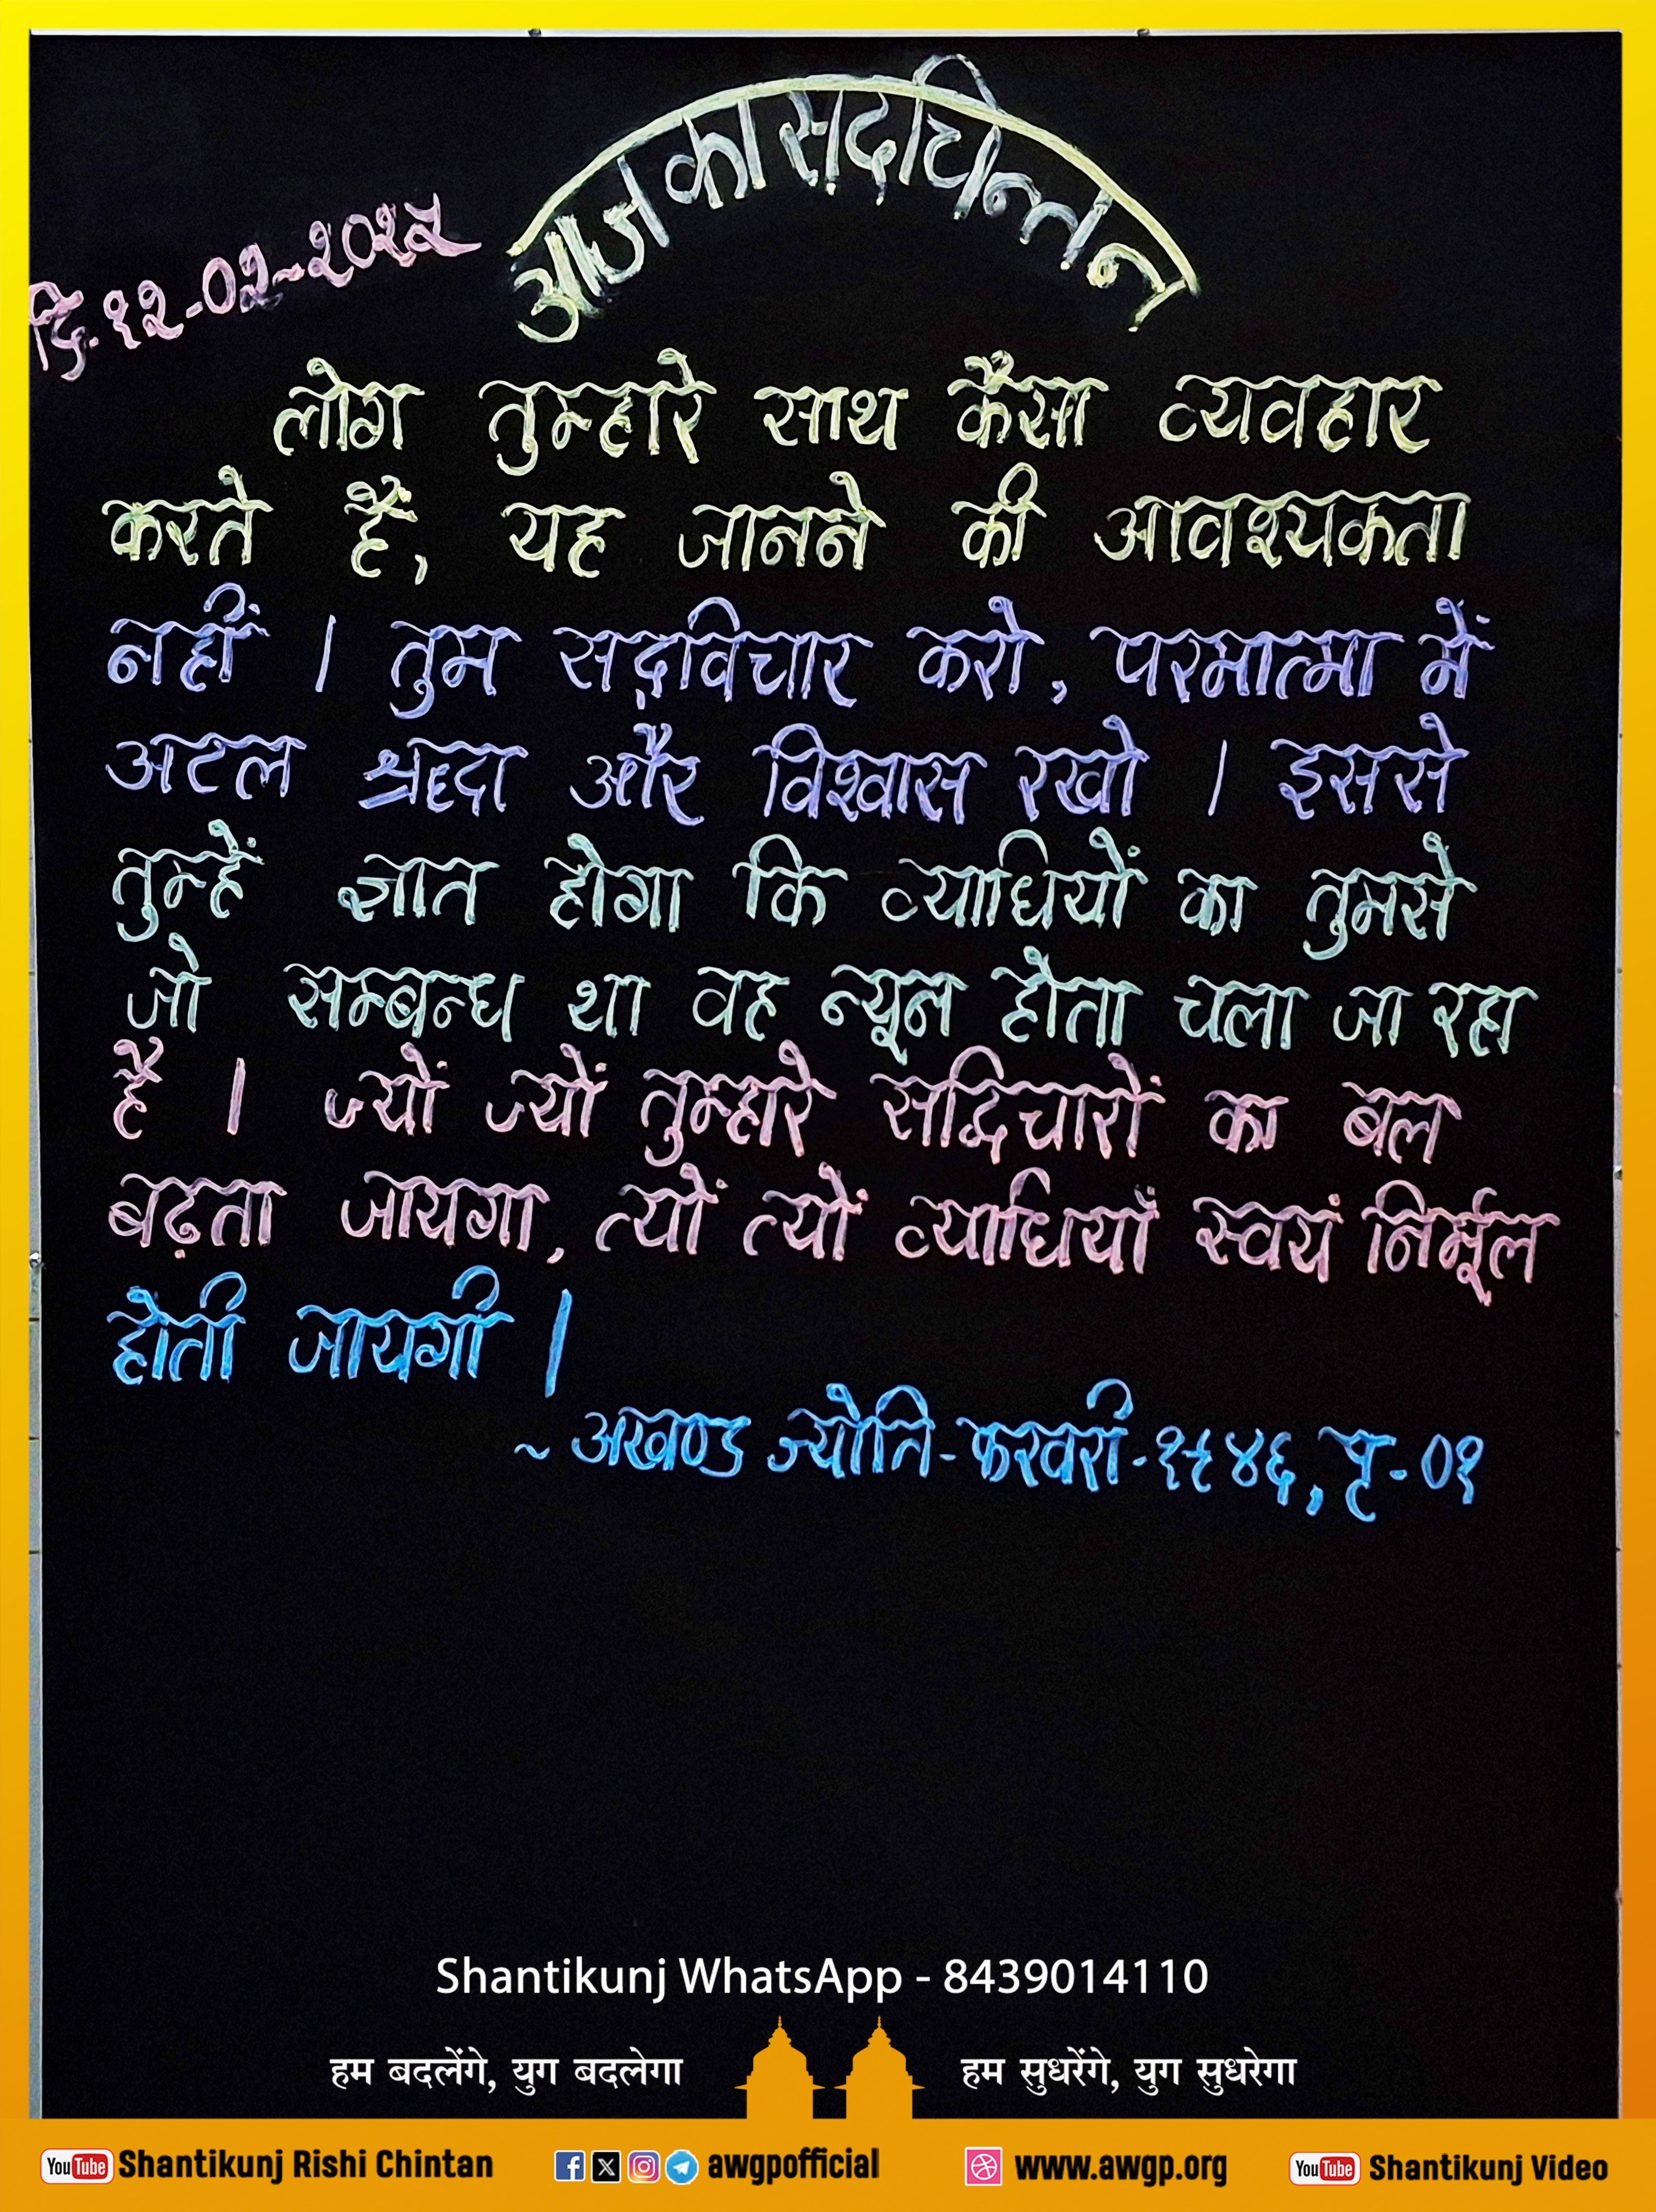 आज का सदचिन्तन
दि. १२-०२-२०२५
लोग तुम्हारे साथ कैसा व्यवहार
करते हैं, यह जानने की आवश्यकता
नहीं । तुम सद्विचार करो, परमात्मा में
अटल श्रद्धा और विश्वास रखो । इससे
तुम्हें ज्ञात होगा कि व्याधियों का तुमसे
जो सम्बन्ध था वह न्यून होता चला जा रहा
है । ज्यों ज्यों तुम्हारे सद्विचारों का बल
बढ़ता जायगा, त्यों त्यों व्याधियाँ स्वयं निर्मूल
होती जायगी ।
~ अखण्ड ज्योति-फरवरी-१९४६, पृ-०१
Shantikunj WhatsApp - 8439014110
हम बदलेंगे, युग बदलेगा हम सुधरेंगे, युग सुधरेगा
YouTube Shantikunj Rishi Chintan awgpofficial www.awgp.org YouTube Shantikunj Video